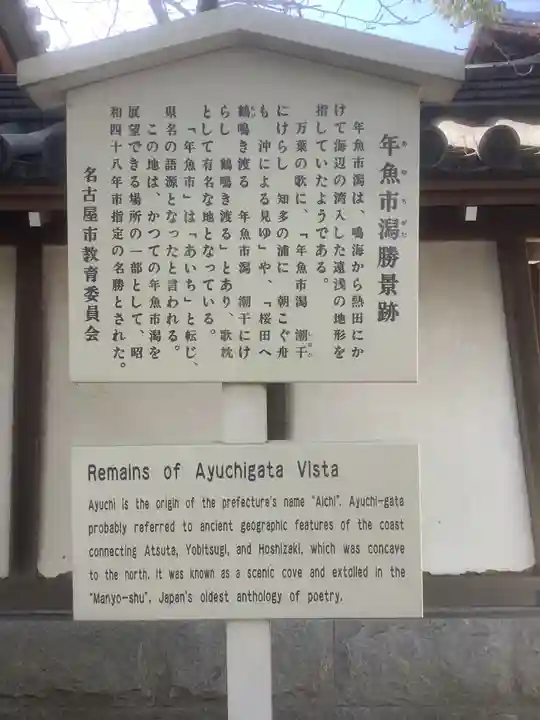 年魚市潟勝景跡
年魚市潟は、鳴海から熱田にか
けて海辺の湾入した遠浅の地形を
指していたようである。
万葉の歌に、「年魚市潟 潮干
にけらし 知多の浦に 朝こぐ舟
も 沖による見ゆ」や、「桜田へ
鶴鳴き渡る 年魚市潟 潮干にけ
らし 鶴鳴き渡る」とあり、歌枕
として有名な地となっている。
「年魚市」は「あいち」と転じ、
県名の語源となったと言われる。
この地は、かつての年魚市潟を
展望できる場所の一部として、昭
和四十八年市指定の名勝とされた。
名古屋市教育委員会
Remains of Ayuchigata Vista
Ayuchi is the origin of the prefecture's name "Aichi". Ayuchi-gata
probably referred to ancient geographic features of the coast
connecting Atsuta, Yobitsugi, and Hoshizaki, which was concave
to the north. It was known as a scenic cove and extolled in the
"Manyo-shu", Japan's oldest anthology of poetry.